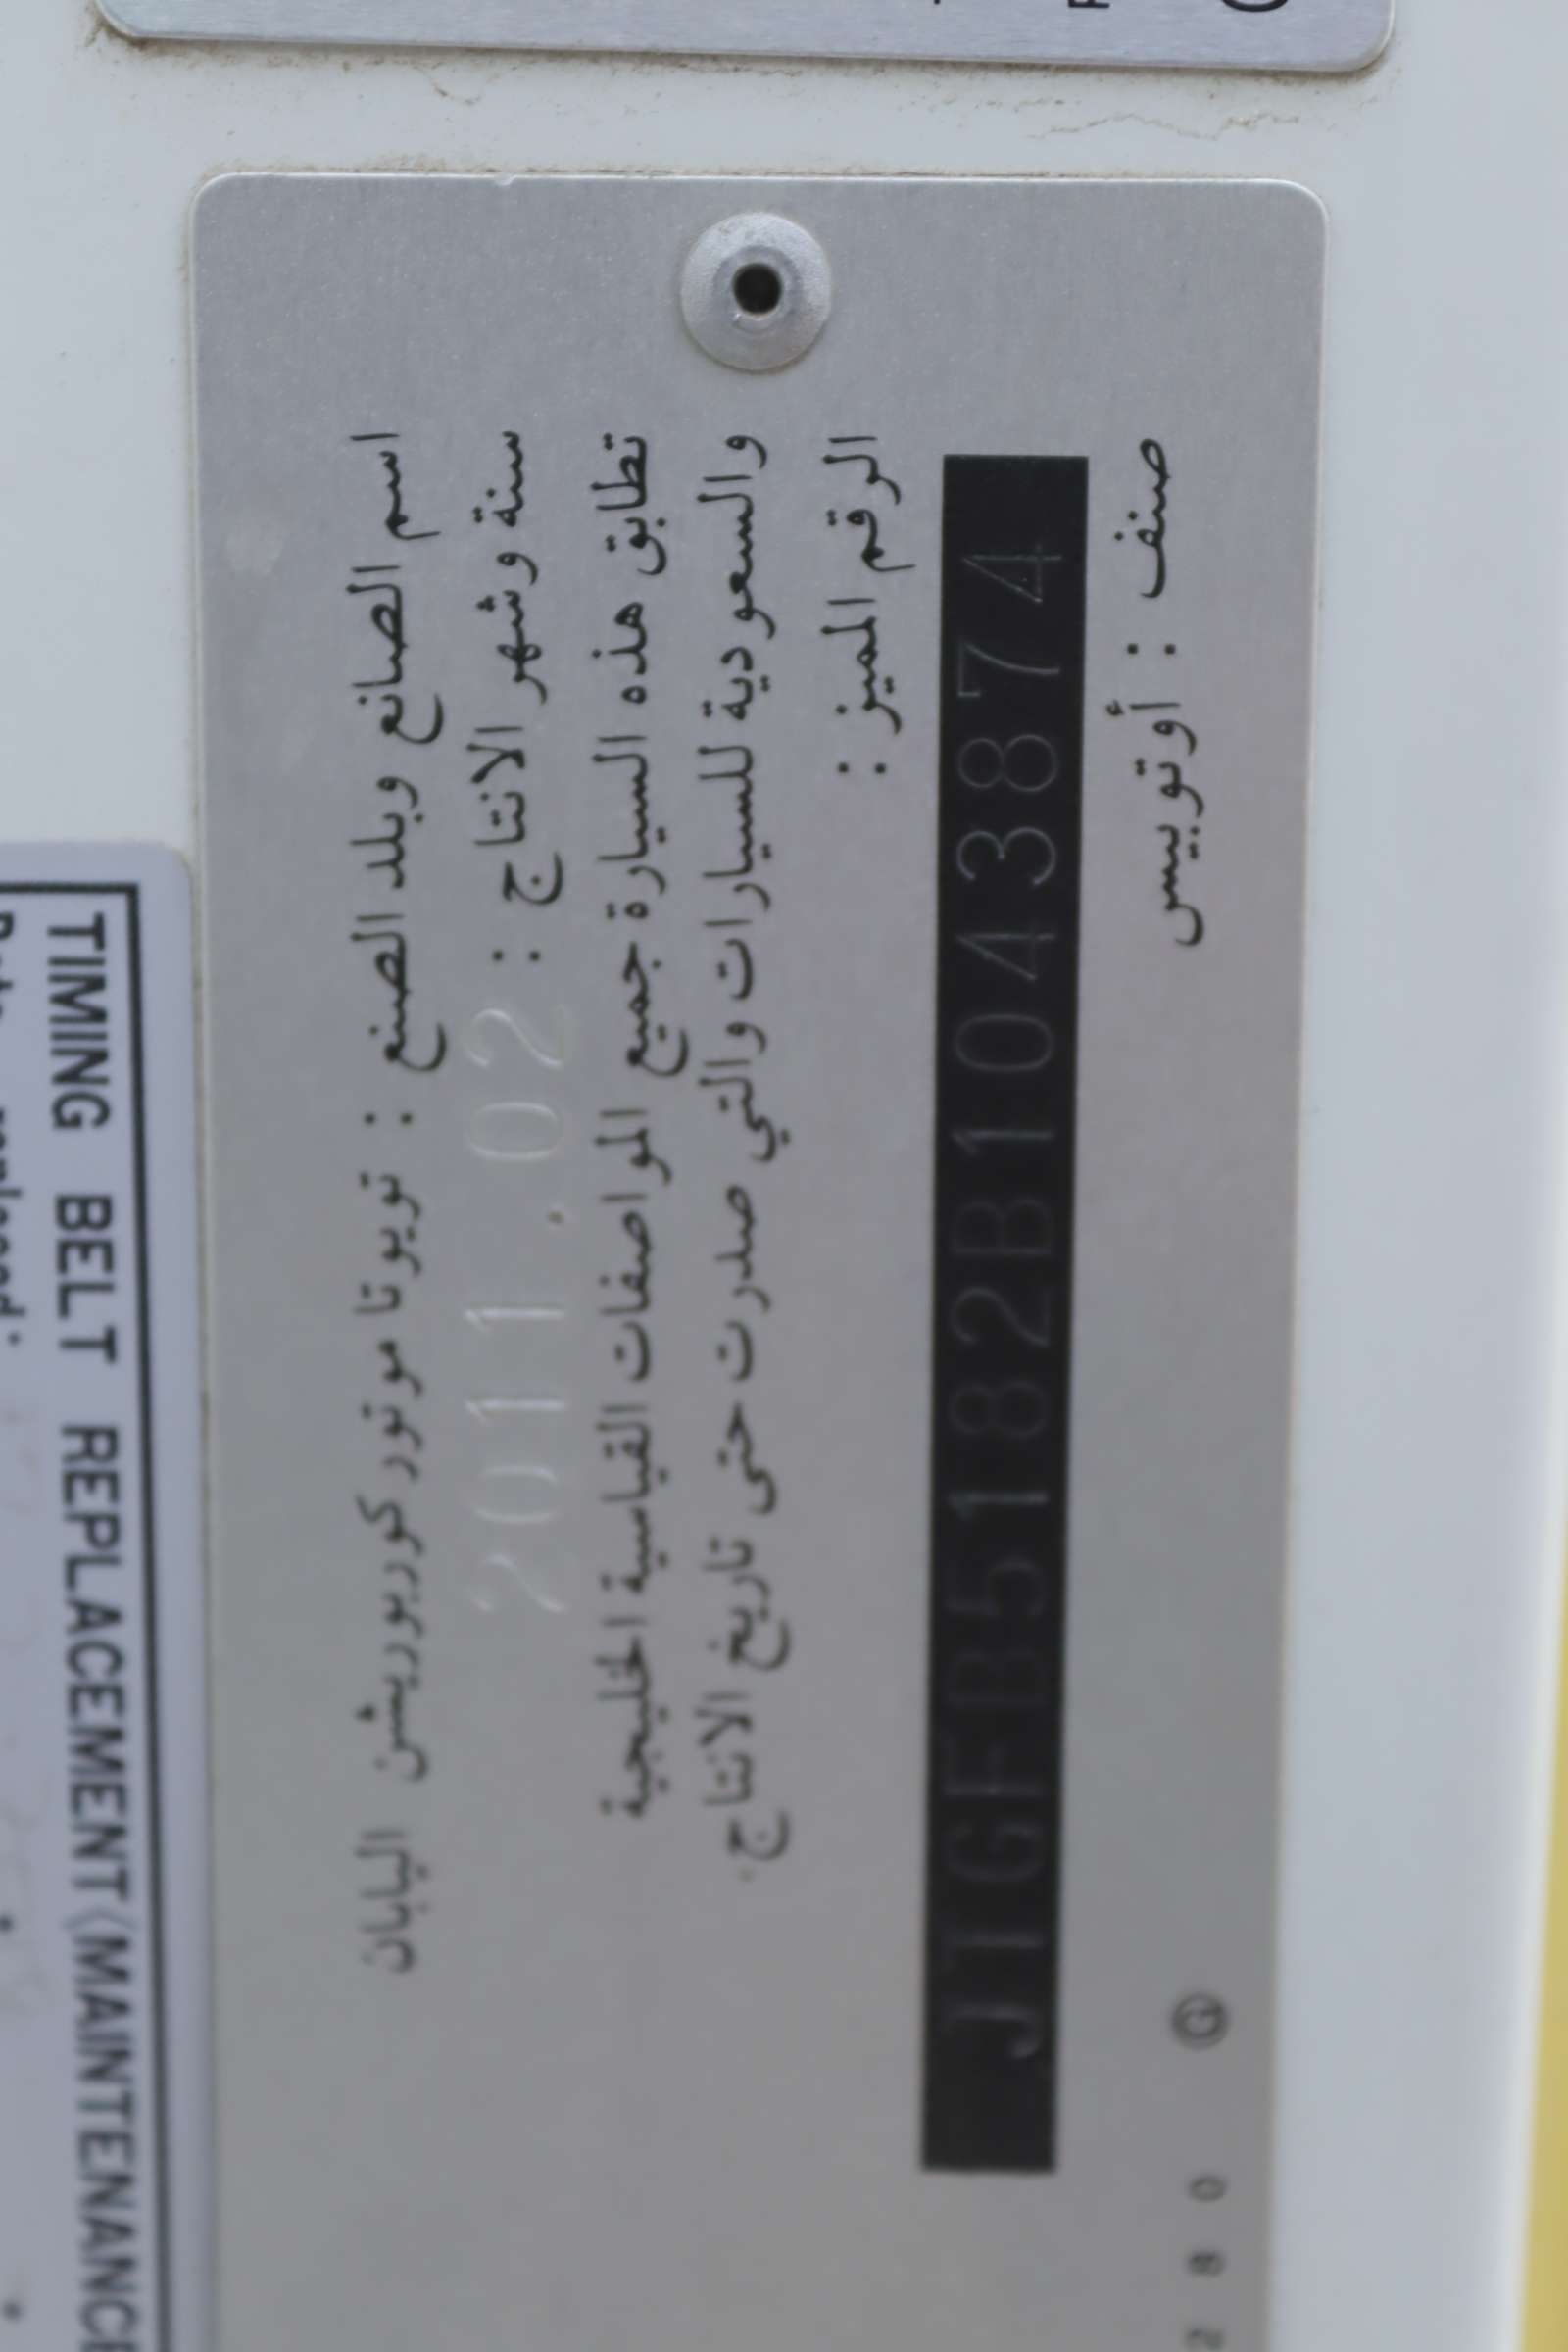 اسم الصانع وبلد الصنع : تويوتا موتور كوربوريشن اليابان
سنة وشهر الانتاج : 2011.02
تطابق هذه السيارة جميع المواصفات القياسية الخليجية
والسعودية للسيارات والتي صدرت حتى تاريخ الانتاج.
الرقم المميز :
JTGFB5182B1043874
صنف : أوتوبيس
G
280
TIMING BELT REPLACEMENT(MAINTENANCE